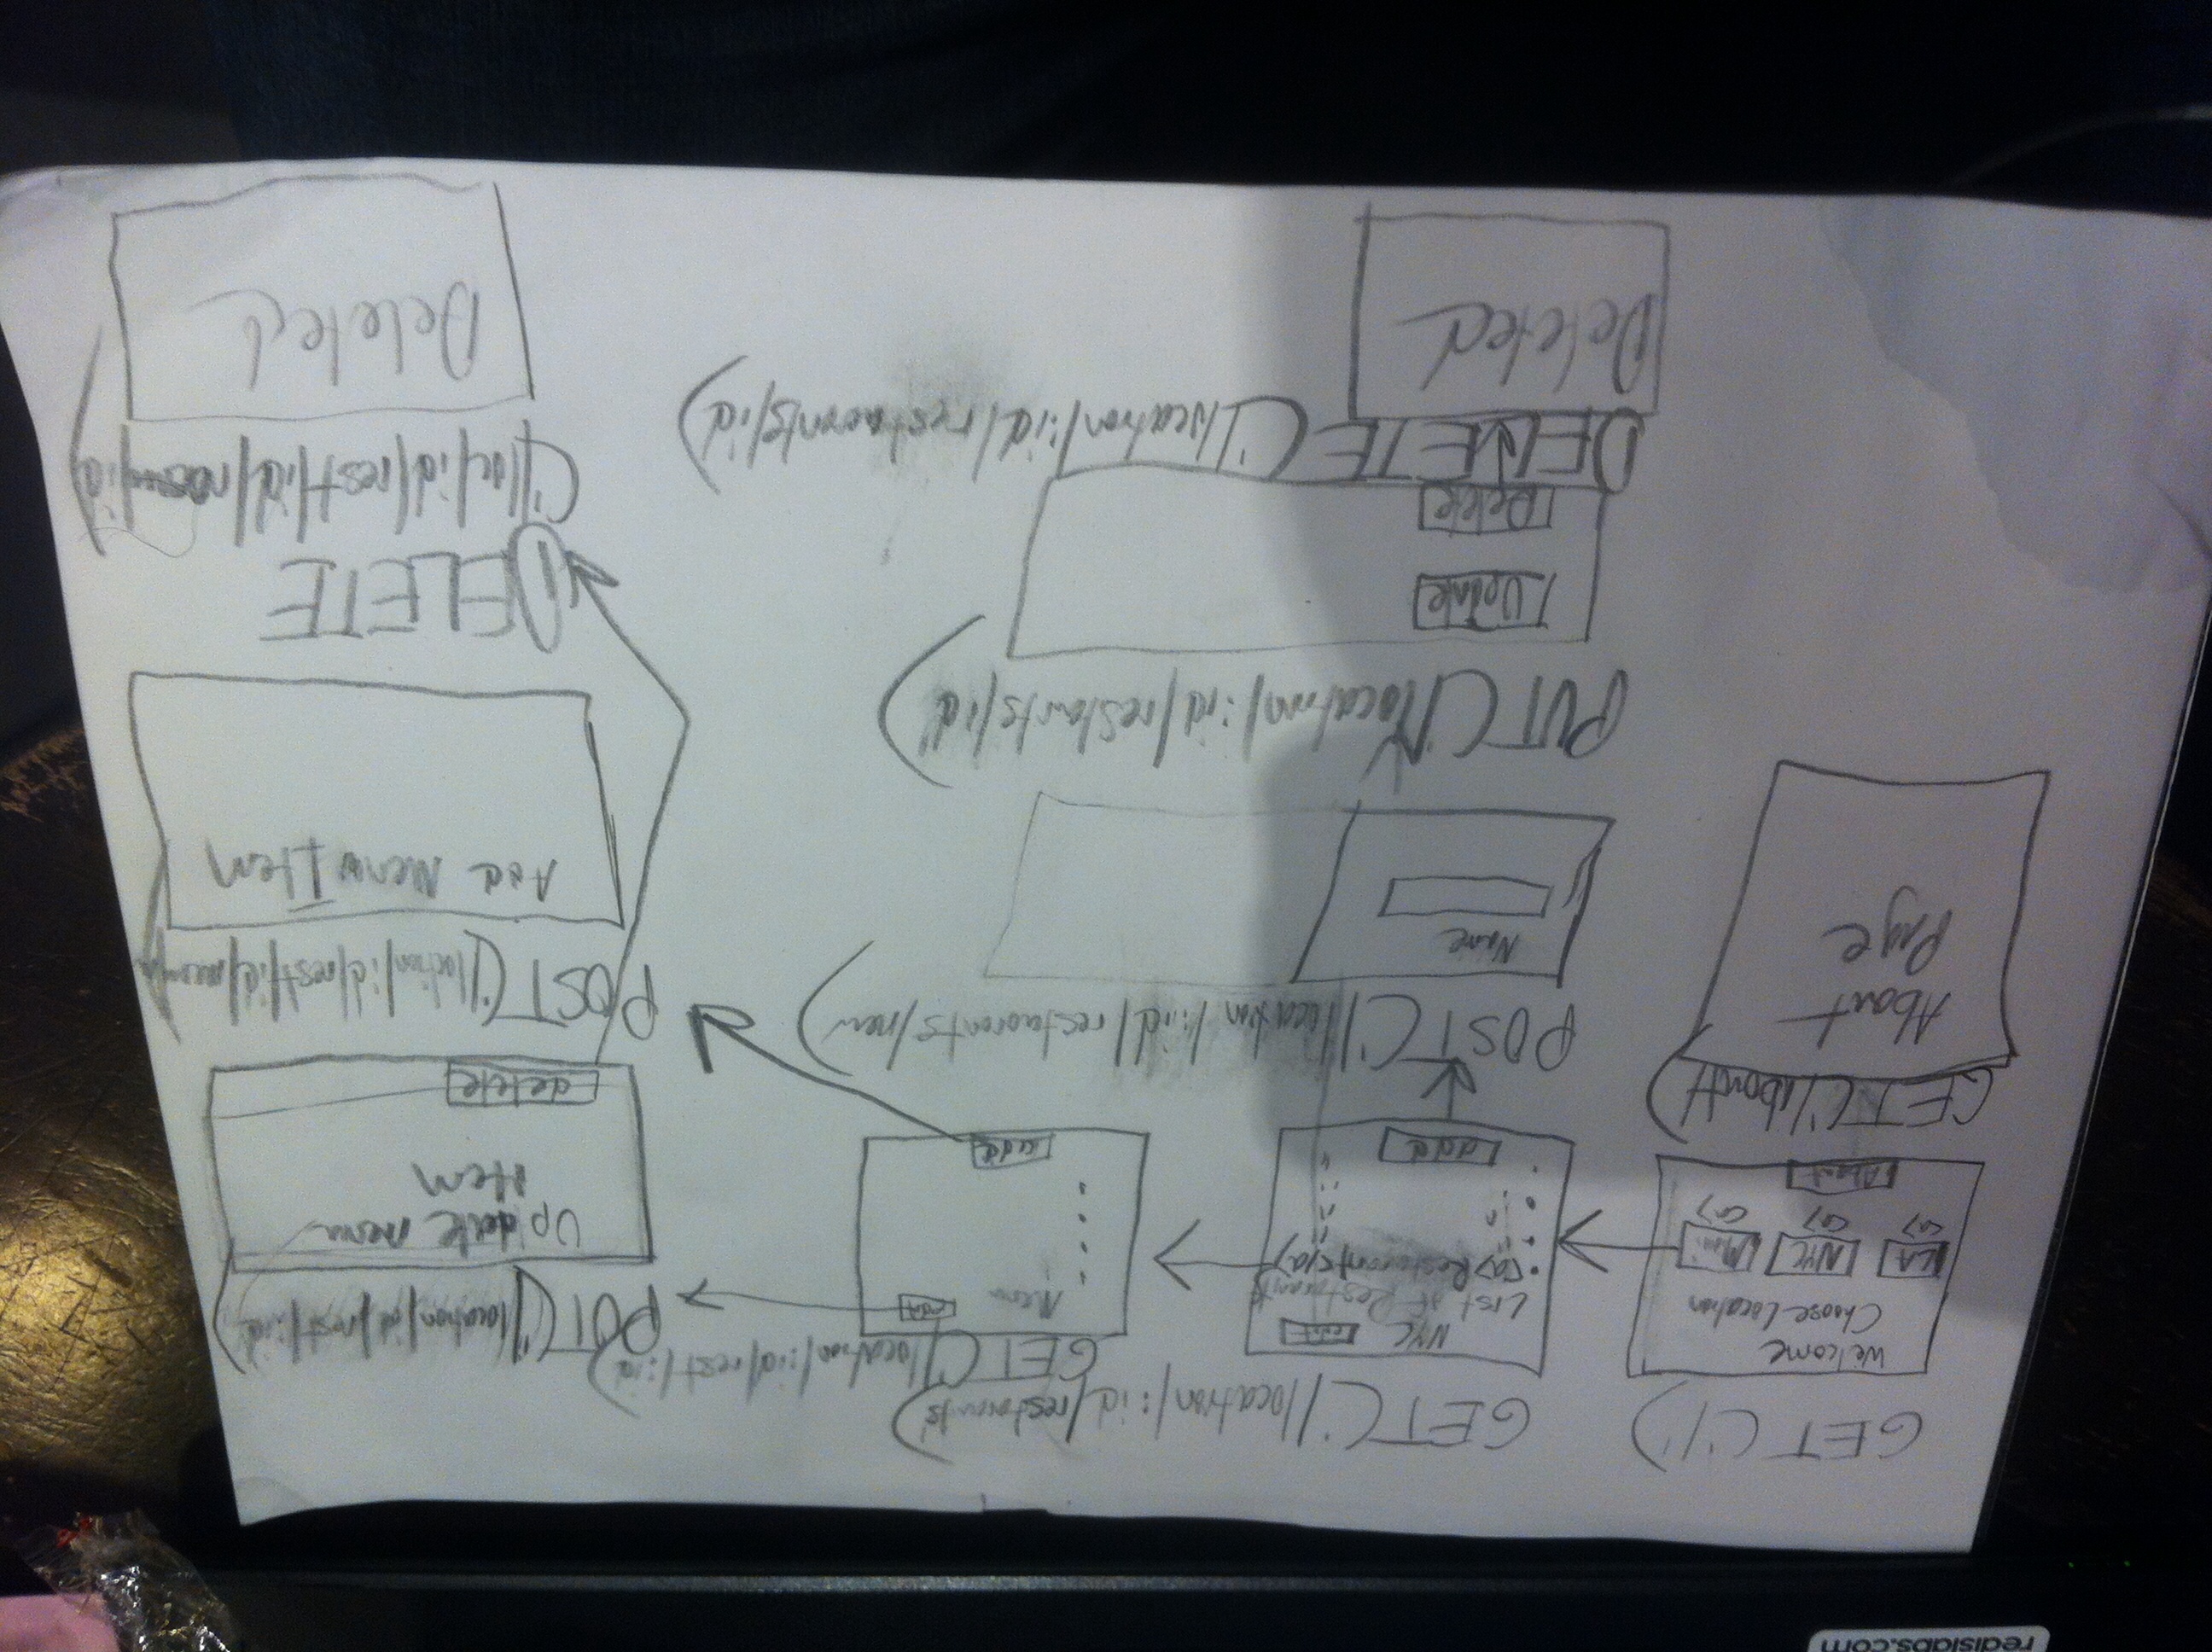 redislabs.com
GET ('/')
Welcome
Choose Location
LA NYC
<a> <a> <a>
About
GET ('/About')
About
Page
GET ('/location/:id/restaraunts')
NYC edit
List of Restaraunts
<a> Restaraunt </a>
add
POST ('/location/:id/restaraunts/new
Name
PUT ('/location/:id/restarts/id')
Update
Delete
DELETE ('/location/:id/restaraunts/id)
Deleted
GET ('/location/:id/rest/:id
Menu edit
add
PUT ('/location/id/rest/:id)
Update menu
item
delete
POST ('/loction/id/rest/id/menu
Add Menu Item
DELETE
('/loc/id/rest/id/menu/id)
Deleted